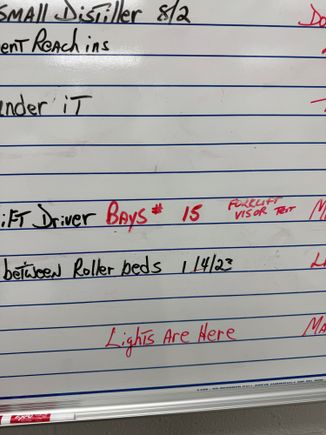 SMALL DisTiller 8/2
ent Reach ins
under iT
iFT Driver BAYS # 15 FORKLIFT VISOR TEST
between Roller beds 1/4/23
LighTs Are Here